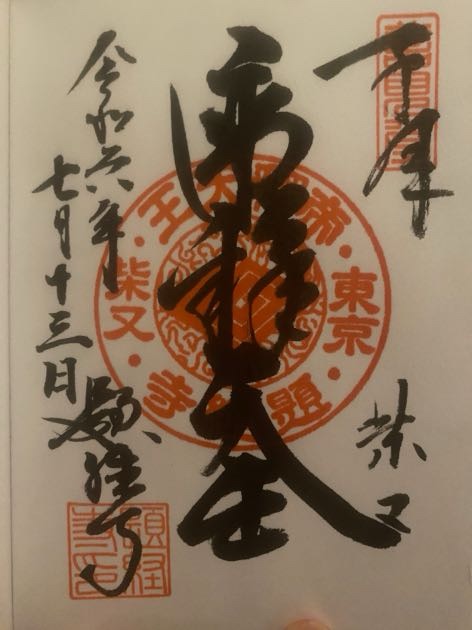 柴又
帝釈天王
令和六年
七月十三日
題経寺
東京
柴又
題経寺
題経寺印